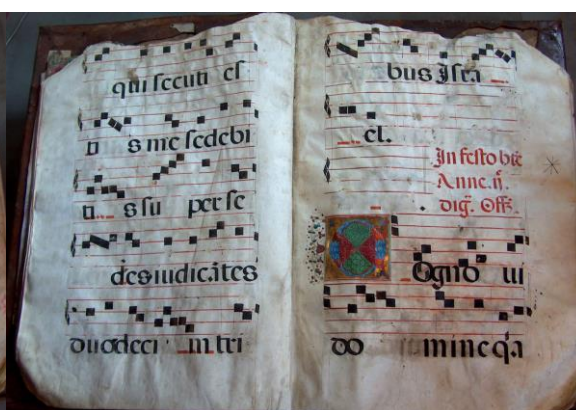 qui secuti es
ti s me sedebi
ti s su per se
des iudicãtes
duodeci m tri
bus Isra
el.
In festo bte
Anne.
dig̃. Off.
Ogno ui
do mine q̃a